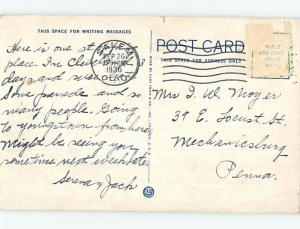 THIS SPACE FOR WRITING MESSAGES
POST CARD
THIS SPACE FOR ADDRESS ONLY
SALEM
SEP 26
12 30 PM
1936
OHIO
PLACE
ONE CENT
STAMP
HERE
Here is one st
place. In Cleve
day and seei
Some parade and so
many people. Going
to youngstown from here
Might be seeing you
sometime next week late
Serena & Jack
Mrs J. W. Moyer
37 E. Locust St.
Mechanicsburg
Penna.